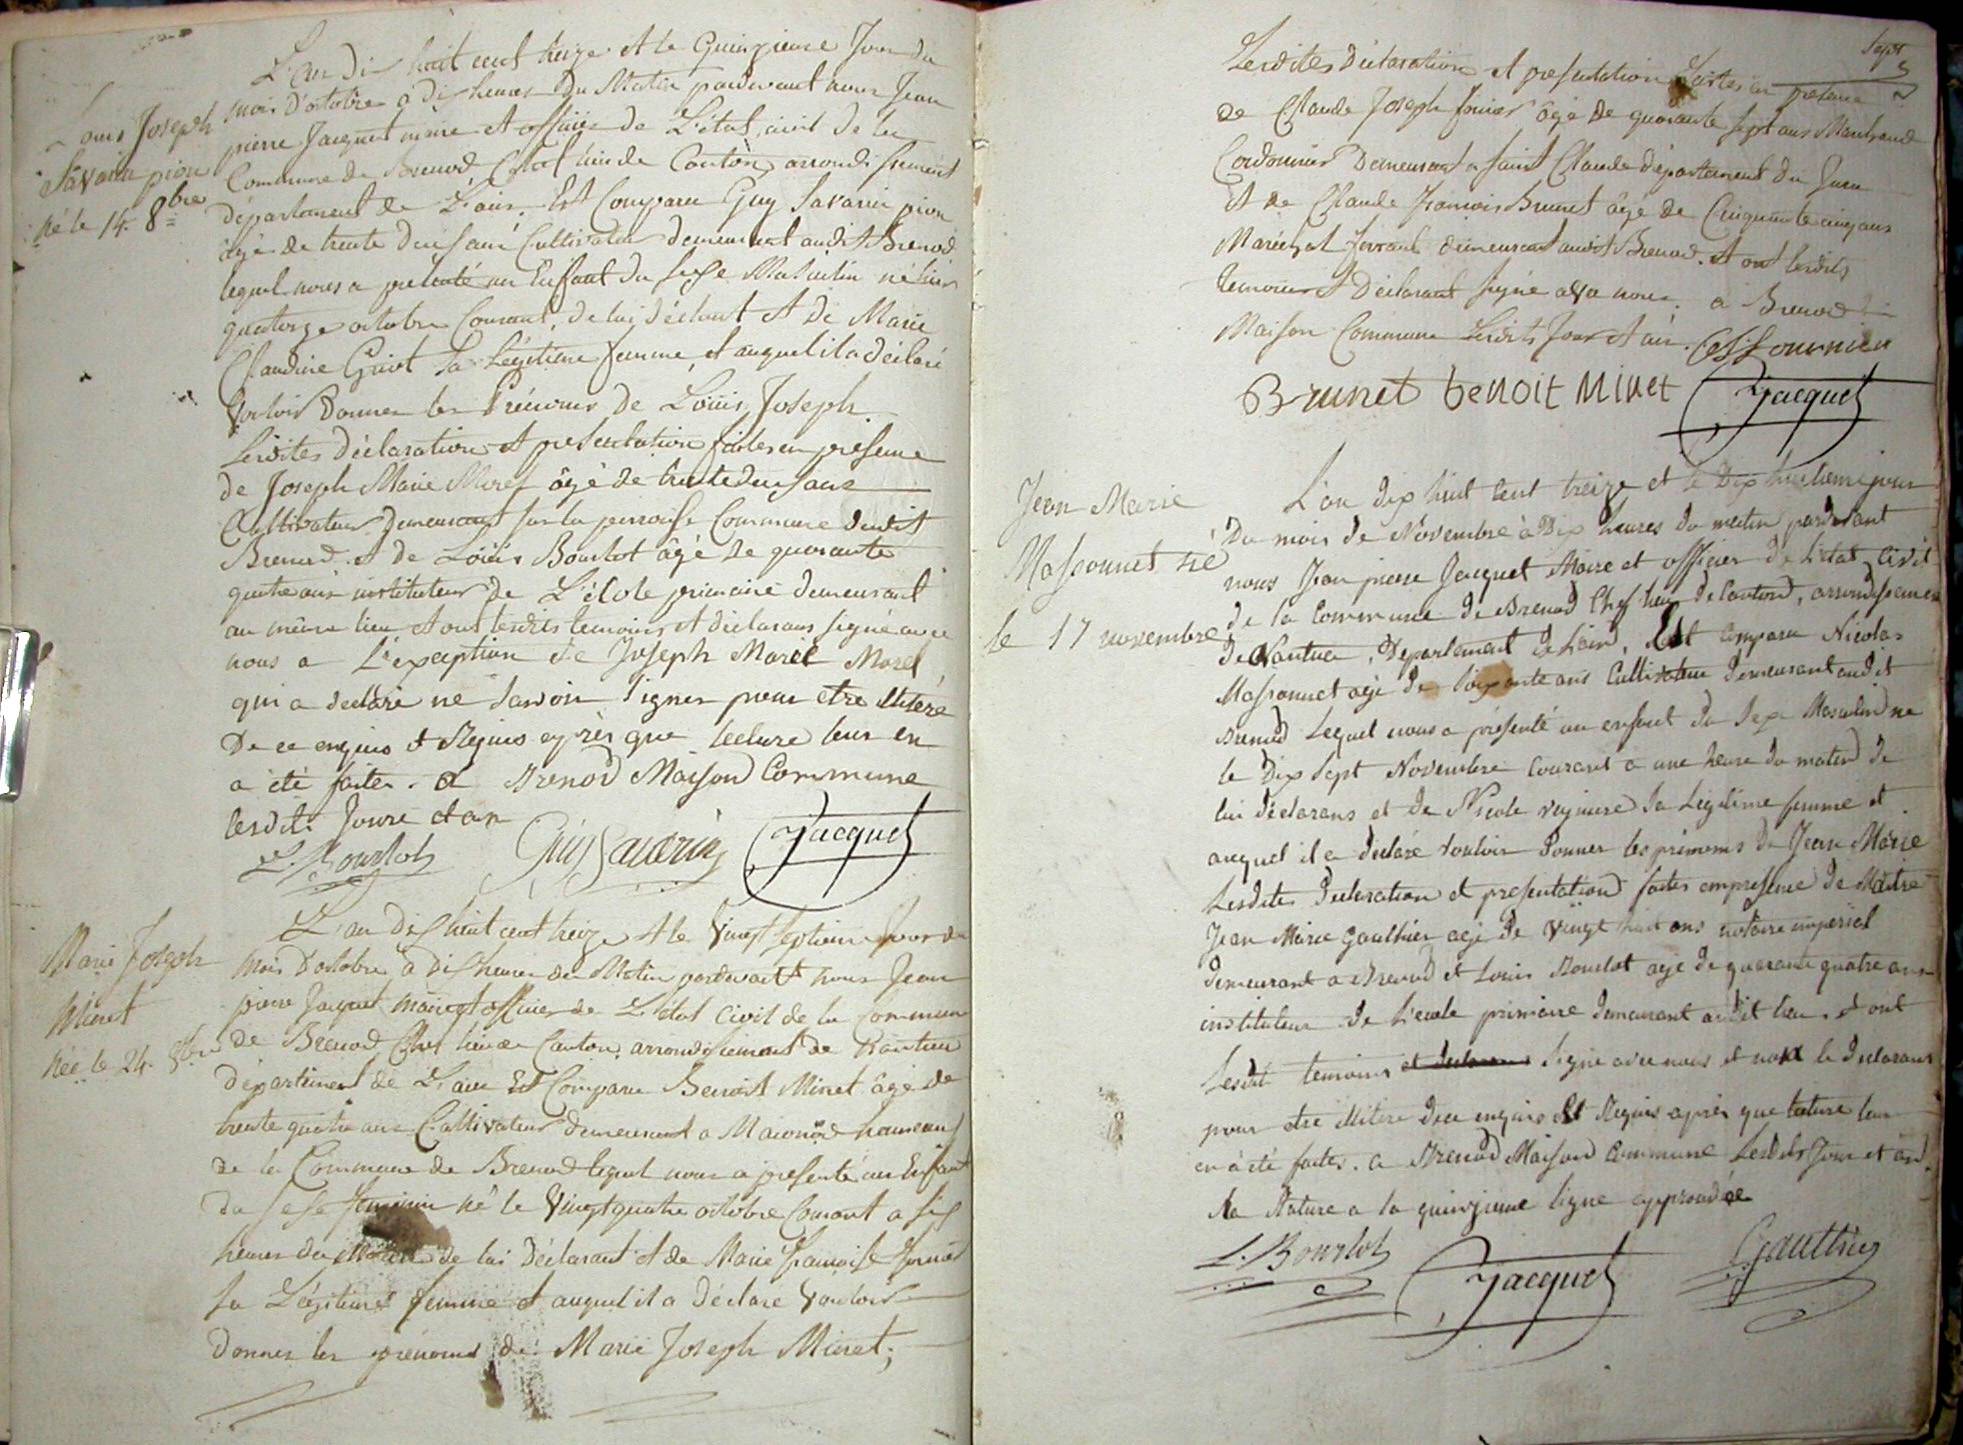 Louis Joseph
Savarin pion
né le 14. 8bre
L'an dix huit cent treize et le Quinzieme Jour du
mois d'octobre a dix heures du Matin pardevant nous Jean
pierre Jacquet maire et officier de L'état civil de la
Commune de Brenod Chef lieu de Canton, arrondissement
département de L'ain. Est Comparu Guy Savarin pion
âgé de trente deux ans Cultivateur demeurant audit Brenod
lequel nous a présenté un Enfant du sexe Masculin né hier
quatorze octobre Courant, de lui déclarant et de Marie
Claudine Guiot sa Légitime femme, et auquel il a déclaré
Vouloir Donner les Prénoms de Louis Joseph.
Lesdites déclaration et presentation faites en presence
de Joseph Marie Morel âgé de trente deux ans
Cultivateur Demeurant sur la Commune dudit
Brenod. et de Louis Bourlot âgé de quarante
quatre ans instituteur de L'école primaire demeurant
au même lieu et ont lesdits temoins et déclarans signé avec
nous a L'exception de Joseph Marie Morel
qui a declaré ne savoir signer pour etre illitéré
De ce enquis et Requis après que lecture leur en
a été faites. a Brenod Maison Commune
lesdits Jours et an
L. Bourlot Guy Savarin Jacquet
Marie Joseph
Minet
Née le 24. 8bre
L'an dix huit cent treize et le Vingt septieme Jour du
Mois D'octobre a dix heures du Matin pardevant nous Jean
pierre Jacquet Maire et officier de L'état Civil de la Commune
de Brenod Chef lieu de Canton, arrondissement de Nantua
département de L'ain Est Comparu Benoit Minet âgé de
trente quatre ans Cultivateur demeurant a Maconod hameau
de la Commune de Brenod lequel nous a presenté un Enfant
du sexe feminin né le Vingt quatre octobre Courant a six
heures du Matin de lui Déclarant et de Marie Françoise fornier
sa Légitime femme et auquel il a Déclaré Vouloir
Donner les prénoms de Marie Joseph Minet;
Sept
Lesdites déclaration et presentation faites en presence
de Claude Joseph fornier âgé de quarante sept ans Marchand
Cordonnier Demeurant a saint Claude département du Jura
Et de Claude francois Brunet âgé de Cinquante cinq ans
Maréchal ferrant demeurant audit Brenod. et ont lesdits
temoins et Déclarant signé avec nous. a Brenod
Maison Commune Lesdits Jour et an. Cs. Js. Fournier
Brunet benoit Minet Jacquet
Jean Marie
Massonnet né
le 17 novembre
L'an dix huit cent treize et le Dix huitieme jour
Du mois de Novembre à Dix heures du matin pardevant
nous Jean pierre Jacquet Maire et officier de L'état Civil
de la Commune de Brenod Chef lieu de Canton, arrondissement
de Nantua, Departement de L'ain, Est comparu Nicolas
Massonnet agé de soixante ans Cultivateur demeurant audit
Brenod Lequel nous a présenté un enfant du sexe Masculin né
le Dix sept Novembre Courant a une heure du matin de
lui déclarans et de Nicole sa Légitime femme et
auquel il a déclaré vouloir donner les prenoms de Jean Marie
Lesdites declaration et presentation faites en presence de Maitre
Jean Marie Gaulthier agé de vingt huit ans notaire imperial
demeurant a Brenod et Louis Bourlot agé de quarante quatre ans
instituteur de L'ecole primaire demeurant audit lieu. et ont
Lesdits temoins et declarans signé avec nous et non le declarans
pour etre illitéré de ce enquis et Requis après que lecture leur
en à été faites. a Brenod Maison Commune Lesdits Jour et an.
la Rature a la quinzieme ligne approuvée
L. Bourlot Jacquet Gaulthier